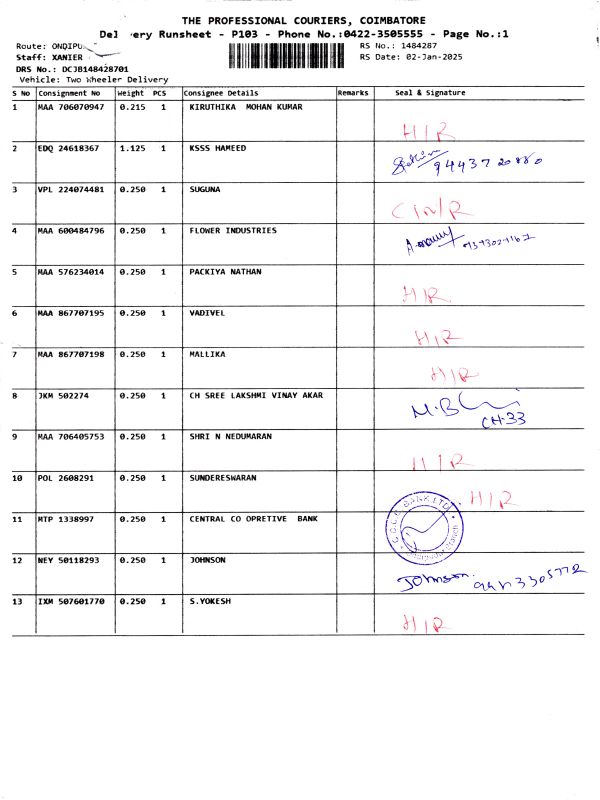 THE PROFESSIONAL COURIERS, COIMBATORE
Delivery Runsheet - P103 - Phone No.:0422-3505555 - Page No.:1
Route: ONDIPU
RS No.: 1484287
Staff: XANIER
RS Date: 02-Jan-2025
DRS No.: DCJB148428701
Vehicle: Two Wheeler Delivery
S No Consignment No Weight PCS Consignee Details Remarks Seal & Signature
1 MAA 706070947 0.215 1 KIRUTHIKA MOHAN KUMAR H/R
2 EDQ 24618367 1.125 1 KSSS HAMEED
3 VPL 224074481 0.250 1 SUGUNA
4 MAA 600484796 0.250 1 FLOWER INDUSTRIES
5 MAA 576234014 0.250 1 PACKIYA NATHAN H/R
6 MAA 867707195 0.250 1 VADIVEL H/R
7 MAA 867707198 0.250 1 MALLIKA H/R
8 JKM 502274 0.250 1 CH SREE LAKSHMI VINAY AKAR
CH-33
9 MAA 706405753 0.250 1 SHRI N NEDUMARAN H/R
10 POL 2608291 0.250 1 SUNDERESWARAN H/R
11 MTP 1338997 0.250 1 CENTRAL CO OPRETIVE BANK BANK LTD
12 NEY 50118293 0.250 1 JOHNSON Johnson
13 IXM 507601770 0.250 1 S.YOKESH H/R